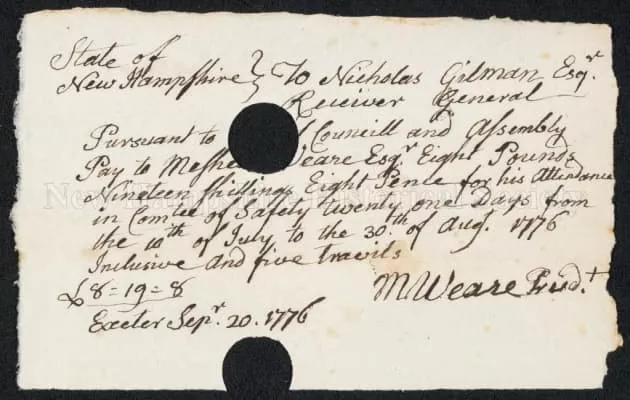 State of
New Hampshire } To Nicholas Gilman Esqr.
Receiver General
Pursuant to Councill and Assembly
Pay to Meshe Weare Esqr. Eight Pounds
Nineteen shillings Eight Pence for his Attendance
in Comtee of Safety twenty one Days from
the 10th of July to the 30th. of Augt. 1776
Inclusive and five travils
£8=19=8 MWeare Presdt
Exeter Sepr. 20. 1776
New Hampshire Historical Society